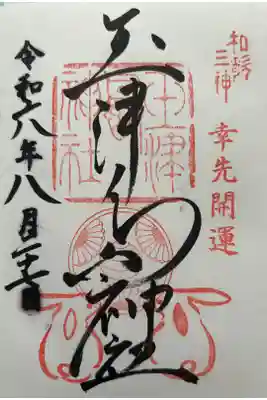 和歌
三神
幸先開運
玉津島神社
玉津島神社
令和六年八月